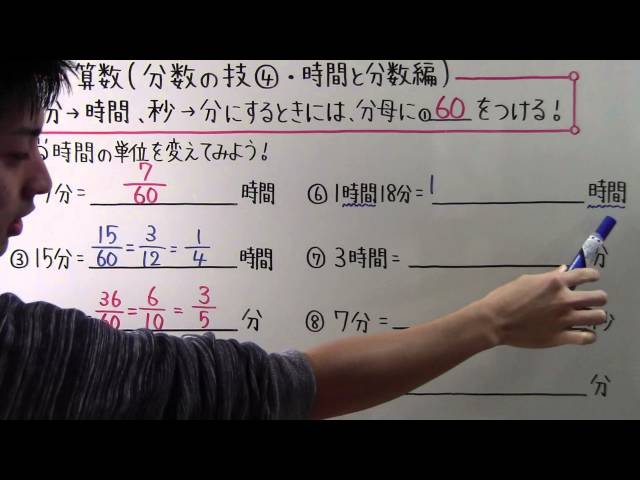 算数(分数の技④・時間と分数編)
分→時間、秒→分にするときには、分母に①60をつける!
時間の単位を変えてみよう!
分= 7/60 時間
③15分= 15/60 = 3/12 = 1/4 時間
36/60 = 6/10 = 3/5 分
⑥1時間18分= 1 時間
⑦3時間= 分
⑧7分= 秒
分